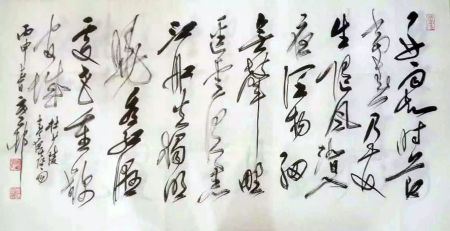 好雨知时节
当春乃发
生随风潜入
夜润物细
无声野
径云俱黑
江船火独明
晓看红湿
处花重锦
官城
丙申春